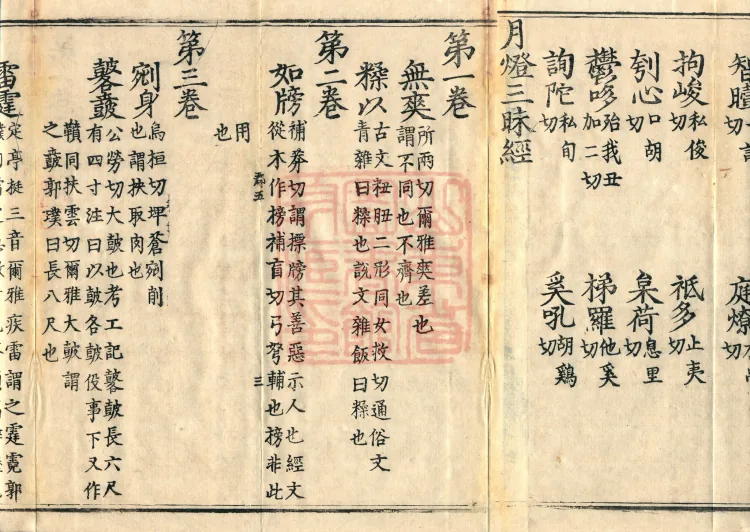 拘峻私俊切 祗多止夷切
刳心口胡切 枲荷息里切
鬱哆加二切殆我丑 梯羅他奚切
詢陀私旬切 奚吼胡鷄切
月燈三昧經
第一卷
無奭所兩切爾雅奭差也謂不同也不齊也
糅以古文粈䏔二形同女救切通俗文青雜曰糅也說文雜飯曰糅也
第二卷
如牓補莽切謂摽牓其善惡示人也經文從木作榜補盲切弓弩輔也榜非此
用也
第三卷
剜身烏桓切埤蒼剜削也謂挾取肉也
鼛鼖公勞切大鼓也考工記鼛鼓長六尺有四寸注曰以鼓各鼓役事下又作
鞼同扶雲切爾雅大鼓謂之鼖郭璞曰長八尺也
雷霆定亭挺三音爾雅疾雷謂之霆霓郭